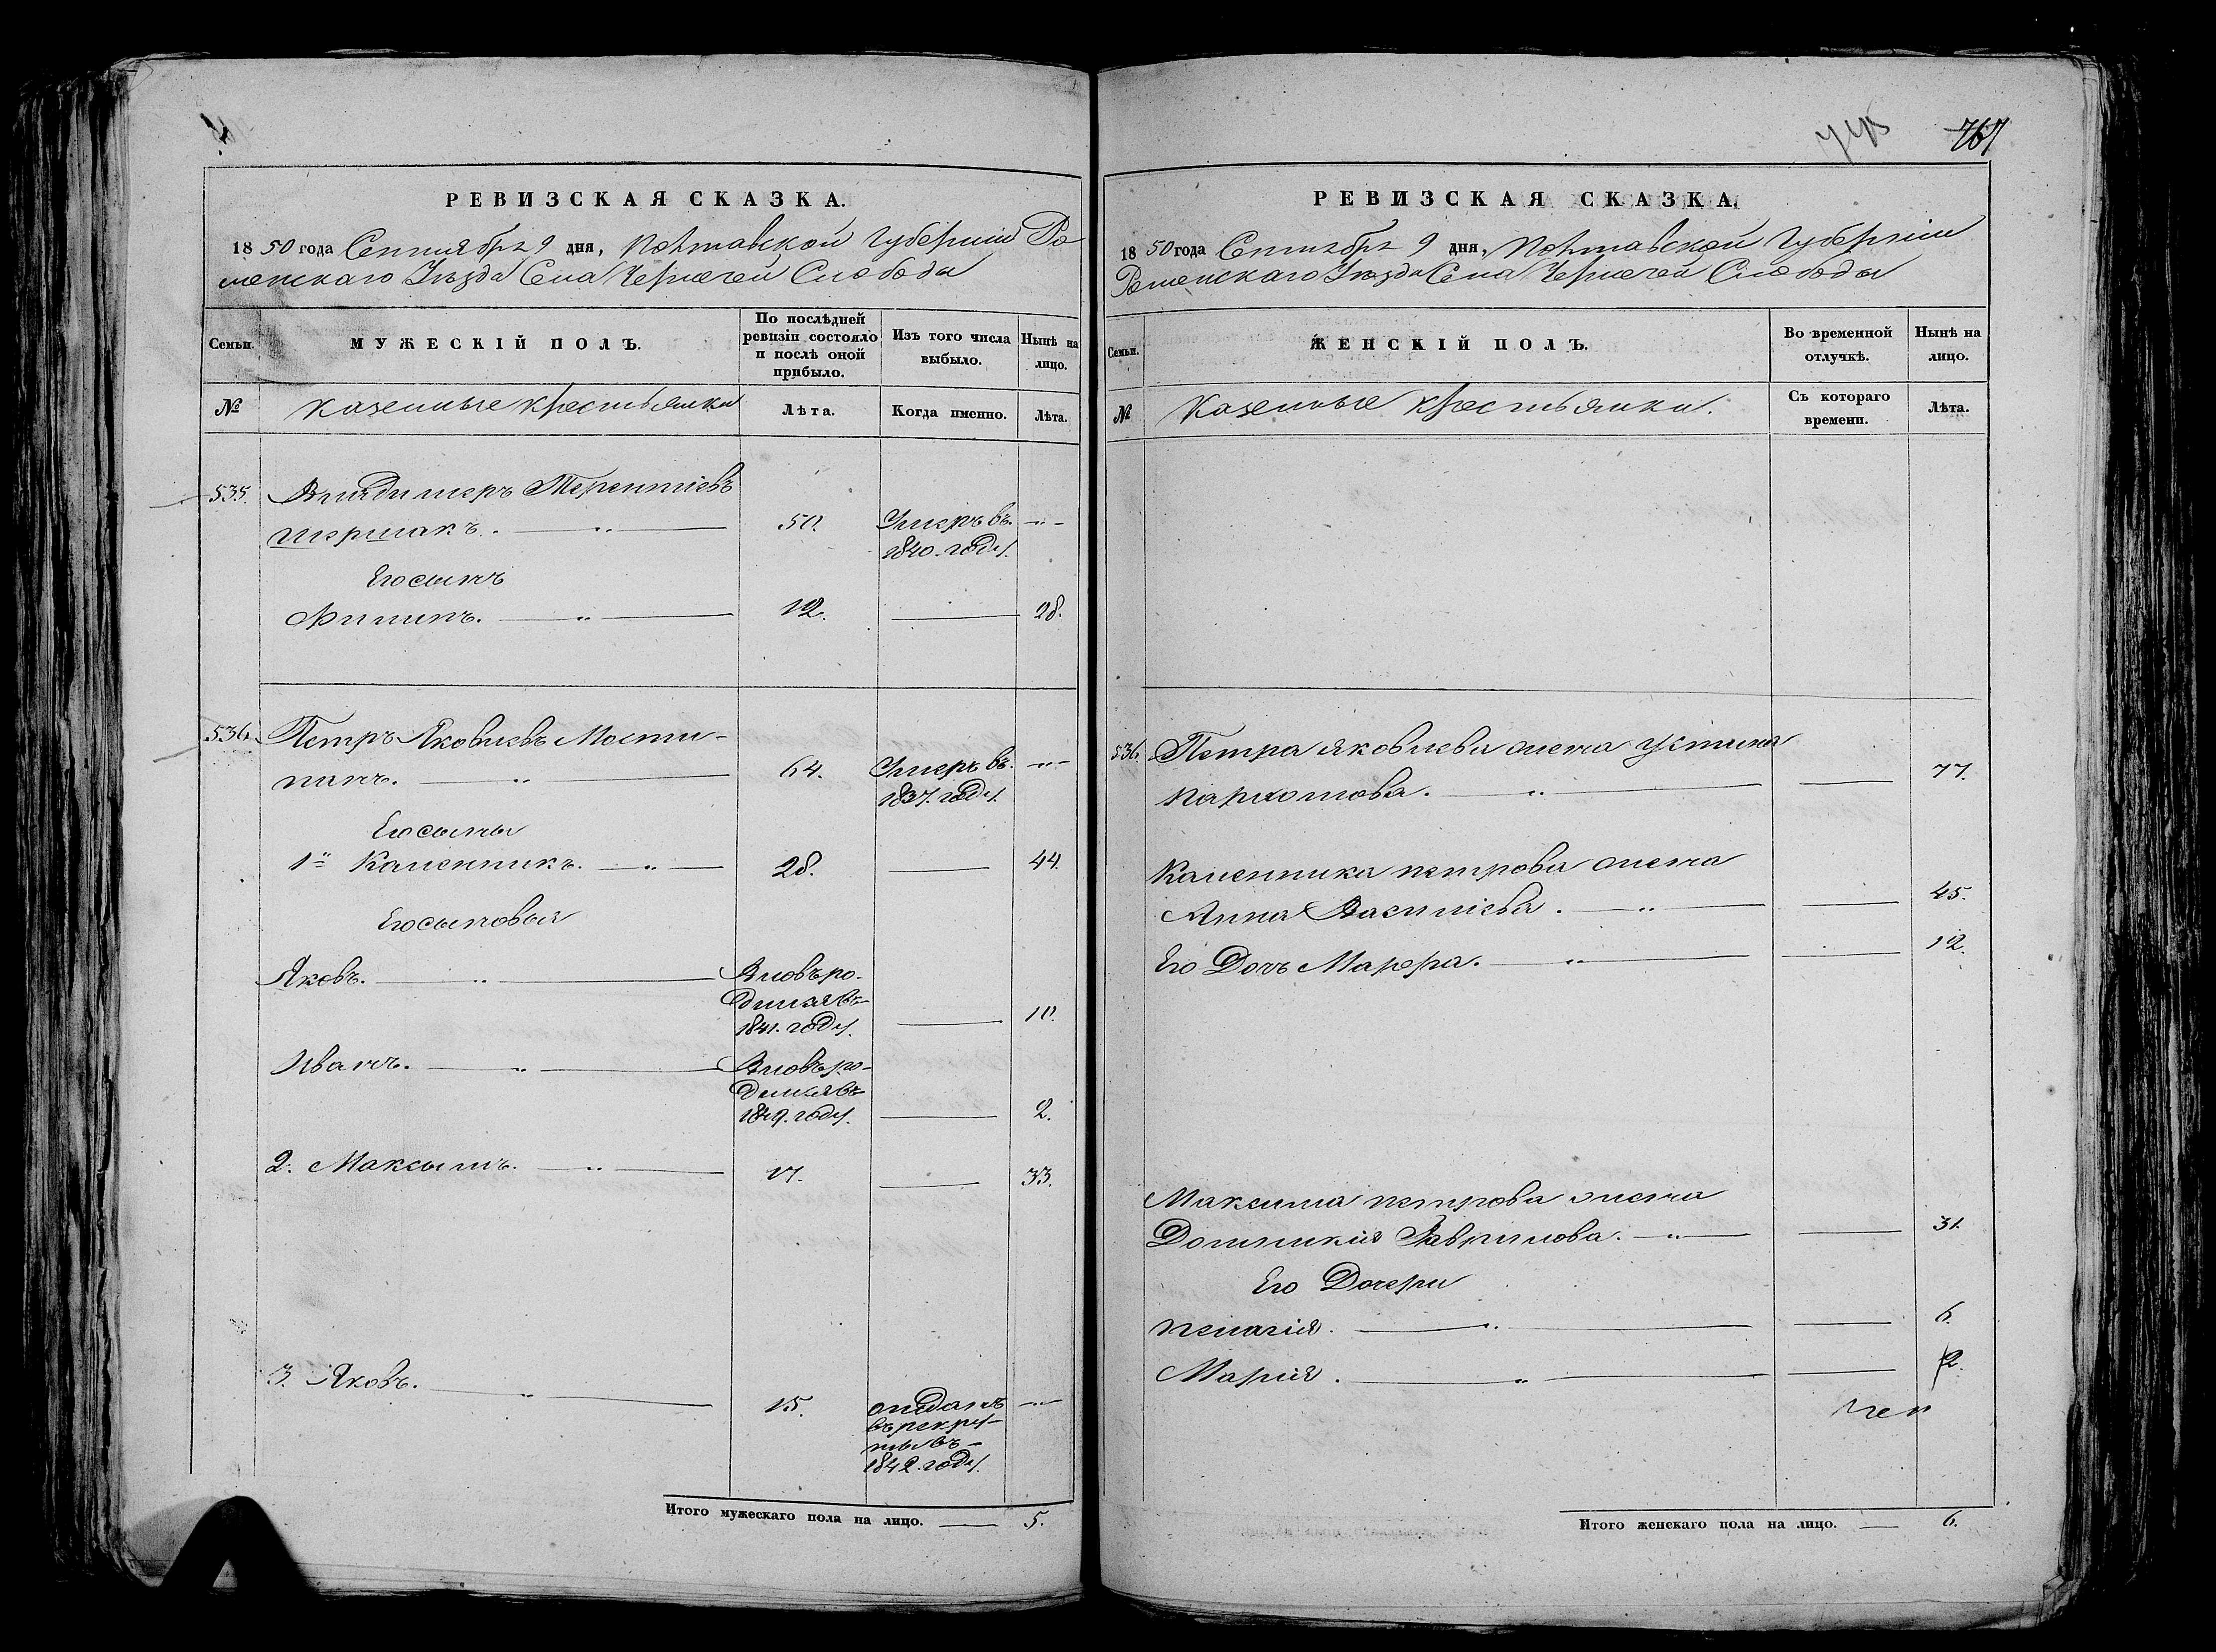 РЕВИЗСКАЯ СКАЗКА.
1850 года Сентября 9 дня, Полтавской Губерніи Ро
менскаго Уѣзда Села Чернечей Слободы
Семьи.
МУЖЕСКІЙ ПОЛЪ.
По послѣдней ревизіи состояло и послѣ оной прибыло.
Изъ того числа выбыло.
Нынѣ на лицо.
№
Казенные крестьянки
Лѣта.
Когда именно.
Лѣта.
535. Владимеръ Терентіевъ
Шершакъ. 50. Умеръ въ
1840. году.
Его сынъ
Филипъ. 12. 28.
536. Петръ Яковлевъ Мости-
панъ. 64. Умеръ въ
1837. году.
Его сыны
1й Каленникъ. 28. 44.
Его сыновья
Яковъ. Вновь ро-
дился въ
1841. году. 10.
Иванъ. Вновь ро-
дился въ
1849. году. 2.
2. Максымъ. 17. 33.
3. Яковъ. 15. отданъ
въ рекру-
ты въ
1842. году.
Итого мужескаго пола на лицо. 5.
767
РЕВИЗСКАЯ СКАЗКА.
1850 года Сентября 9 дня, Полтавской Губерніи
Роменскаго Уѣзда Села Чернечей Слободы
Семьи.
ЖЕНСКІЙ ПОЛЪ.
Во временной отлучкѣ.
Нынѣ на лицо.
№
Казенные крестьянки.
Съ котораго времени.
Лѣта.
536. Петра Яковлева жена Устина
Пархомова. 77.
Каленника Петрова жена
Анна Василіева. 45.
Его Дочь Марфа. 12.
Максима Петрова жена
Домникія Гаврилова. 31.
Его Дочери
Пелагія. 6.
Марія. 2.
Итого женскаго пола на лицо. 6.